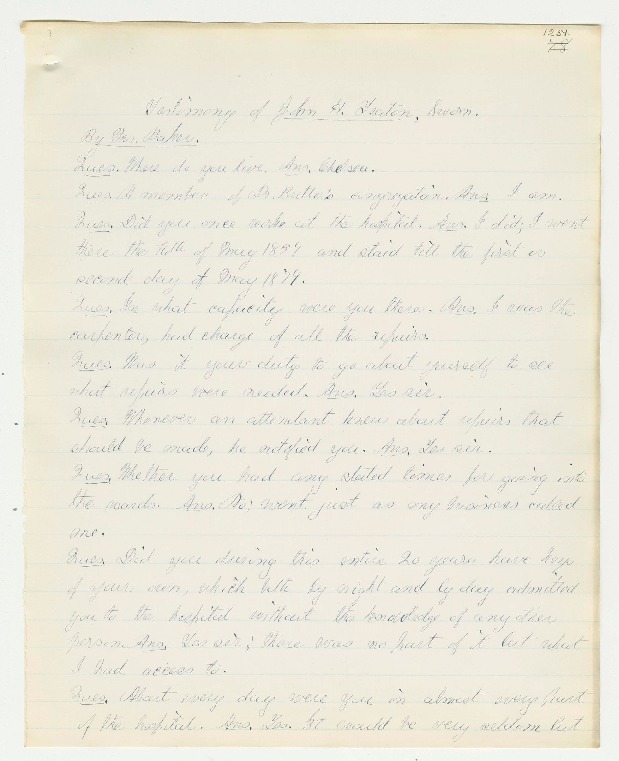 1254.
Testimony of John H. Treaton, Sworn.
By Mr. Baker.
Ques. Where do you live. Ans. Chelsea.
Ques. A member of Dr. Butler's congregation. Ans. I am.
Ques. Did you once work at the hospital. Ans. I did; I went
there the 4th of May 1859 and staid till the first or
second day of May 1879.
Ques. In what capacity were you there. Ans. I was the
carpenter, had charge of all the repairs.
Ques. Was it your duty to go about yourself to see
what repairs were needed. Ans. Yes sir.
Ques. Whenever an attendant knew about repairs that
should be made, he notified you. Ans. Yes sir.
Ques. Whether you had any stated times for going into
the wards. Ans. No; went just as my business called
me.
Ques. Did you during this entire 20 years have keys
of your own, which both by night and by day admitted
you to the hospital without the knowledge of any other
person. Ans. Yes sir; there was no part of it but what
I had access to.
Ques. About every day were you in almost every part
of the hospital. Ans. Yes. It would be very seldom but